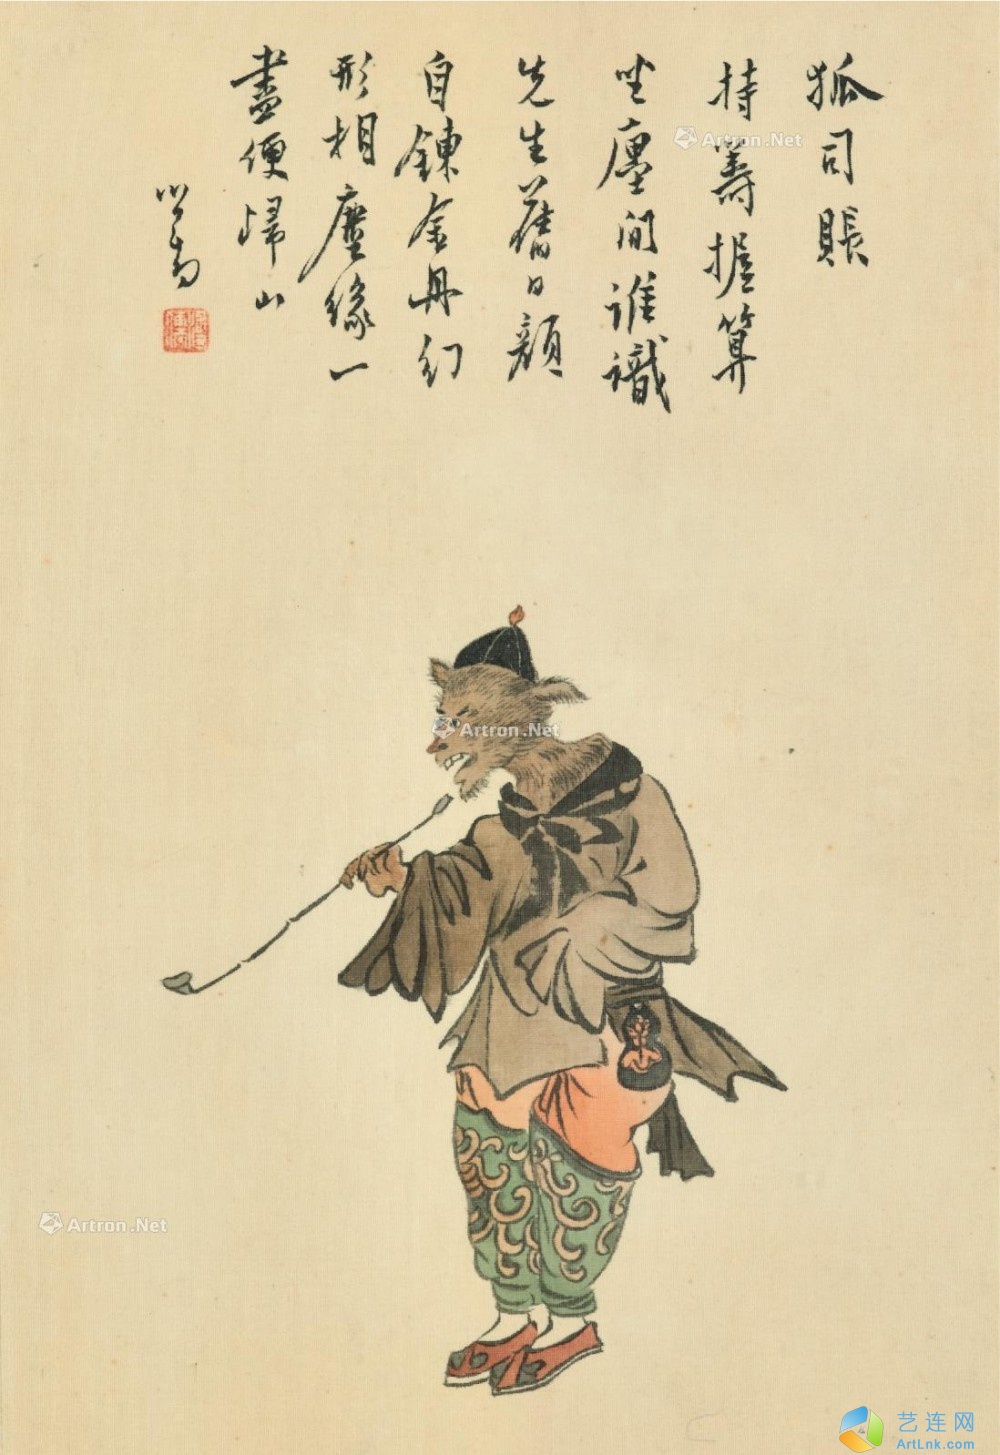 狐司賬
持籌握算
坐廛間誰識
先生舊日顏
自鍊金丹幻
形相塵緣一
盡便歸山
心畬
Artron.Net
Artron.Net
Artron.Net
艺连网
ArtLnk.com